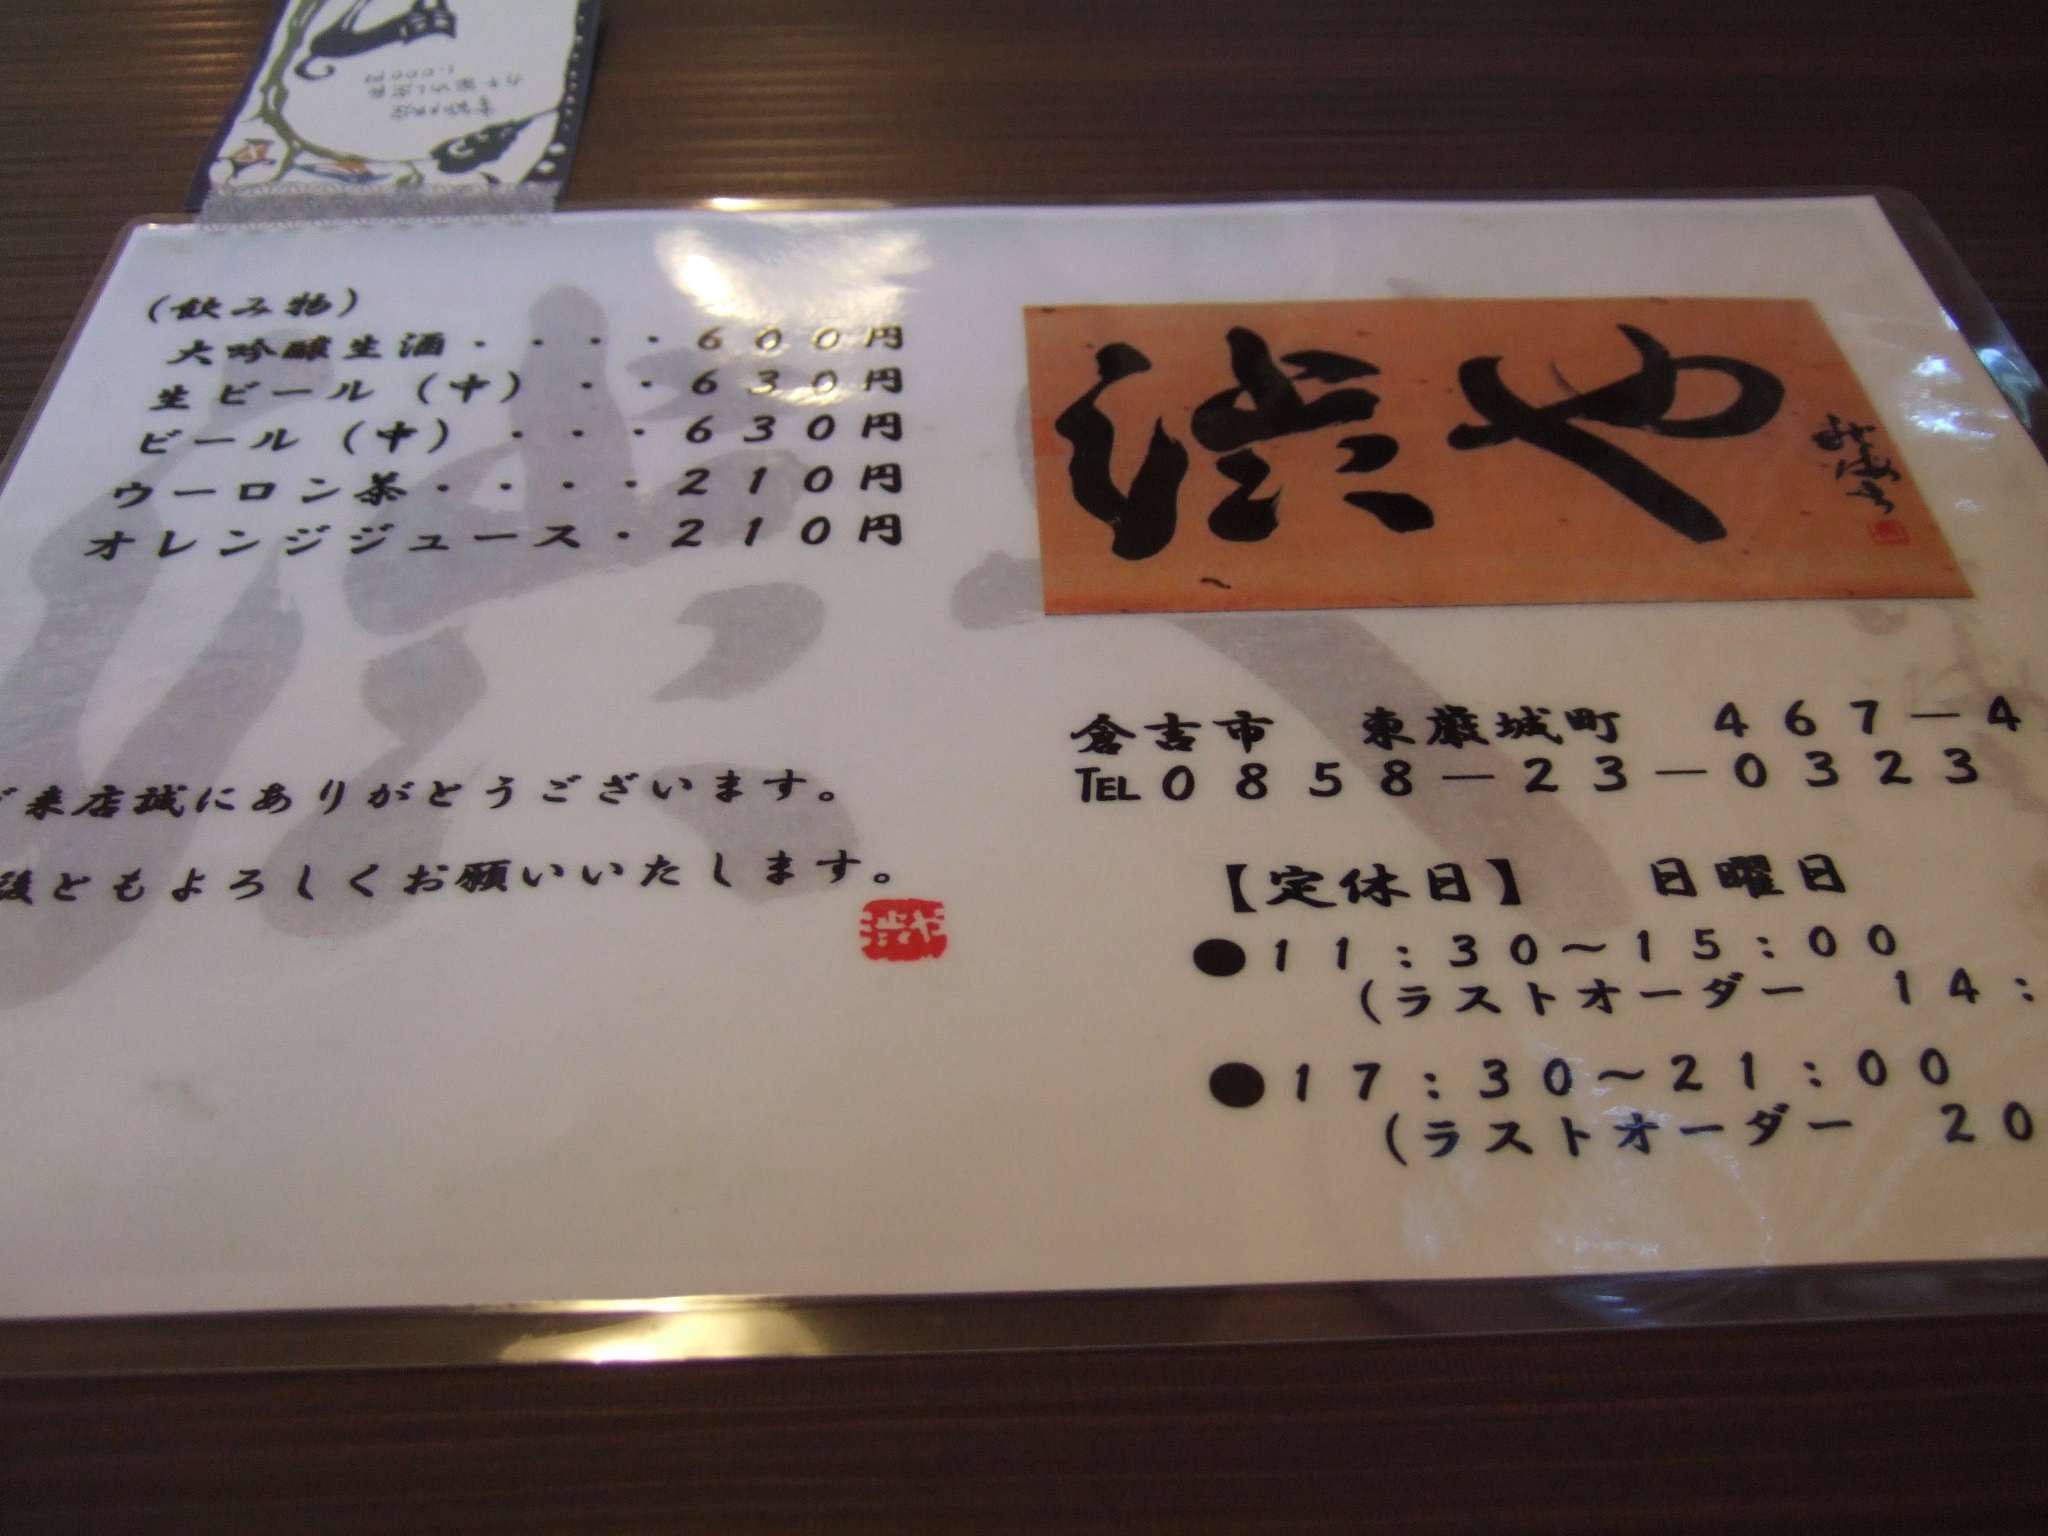 (飲み物)
大吟醸生酒・・・・600円
生ビール(中)・・・630円
ビール(中)・・・630円
ウーロン茶・・・・210円
オレンジジュース・210円
ご来店誠にありがとうございます。
後ともよろしくお願いいたします。
渋や
倉吉市 東巌城町 467-4
TEL0858-23-0323
【定休日】 日曜日
●11:30~15:00
(ラストオーダー 14:
●17:30~21:00
(ラストオーダー 20
1.000円